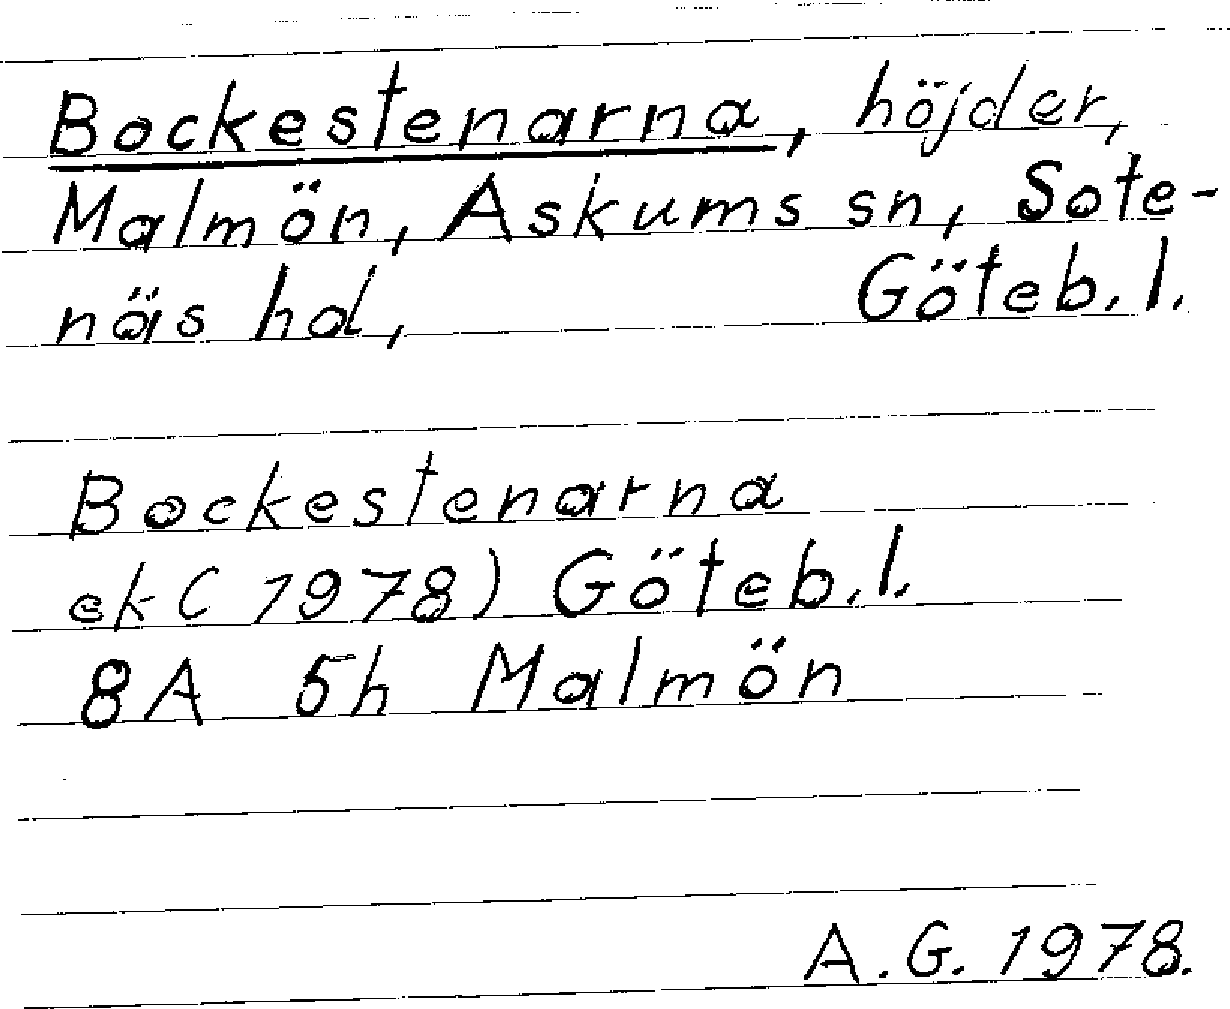 Bockestenarna, höjder,
Malmön, Askums sn, Sote-
näs hd, Göteb. l.
Bockestenarna
ek ( 1978) Göteb. l.
8A 5h Malmön
A. G. 1978.